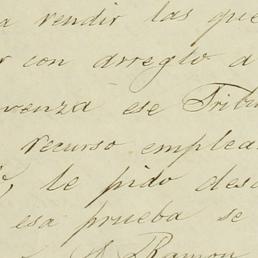 a rendir las que
r con arreglo a
venza ese Tribu
recurso emplea
le pido desd
esa prueba se
Ramon